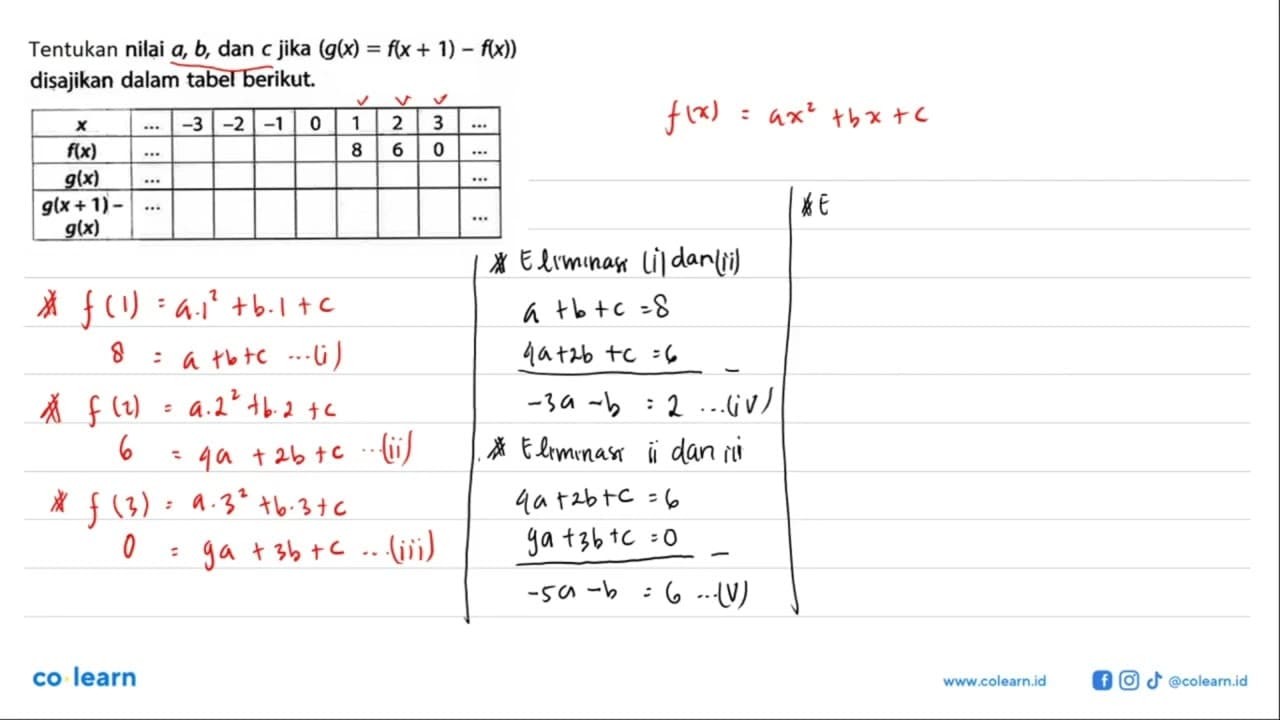 Tentukan nilai a, b, dan c jika (g(x) = f(x + 1) – f(x))
disajikan dalam tabel berikut.
x ... –3 –2 –1 0 1 2 3 ...
f(x) ... 8 6 0 ...
g(x) ... ...
g(x + 1) – g(x) ... ...
f(x) = ax² + bx + c
* f(1) = a.1² + b.1 + c
8 = a + b + c ...(i)
* f(2) = a.2² + b.2 + c
6 = 4a + 2b + c ...(ii)
* f(3) = a.3² + b.3 + c
0 = 9a + 3b + c ...(iii)
* Eliminasi (i) dan (ii)
a + b + c = 8
4a + 2b + c = 6 –
-3a - b = 2 ...(iv)
* Eliminasi ii dan iii
4a + 2b + c = 6
9a + 3b + c = 0 –
-5a - b = 6 ...(v)
* E
co learn
www.colearn.id @colearn.id